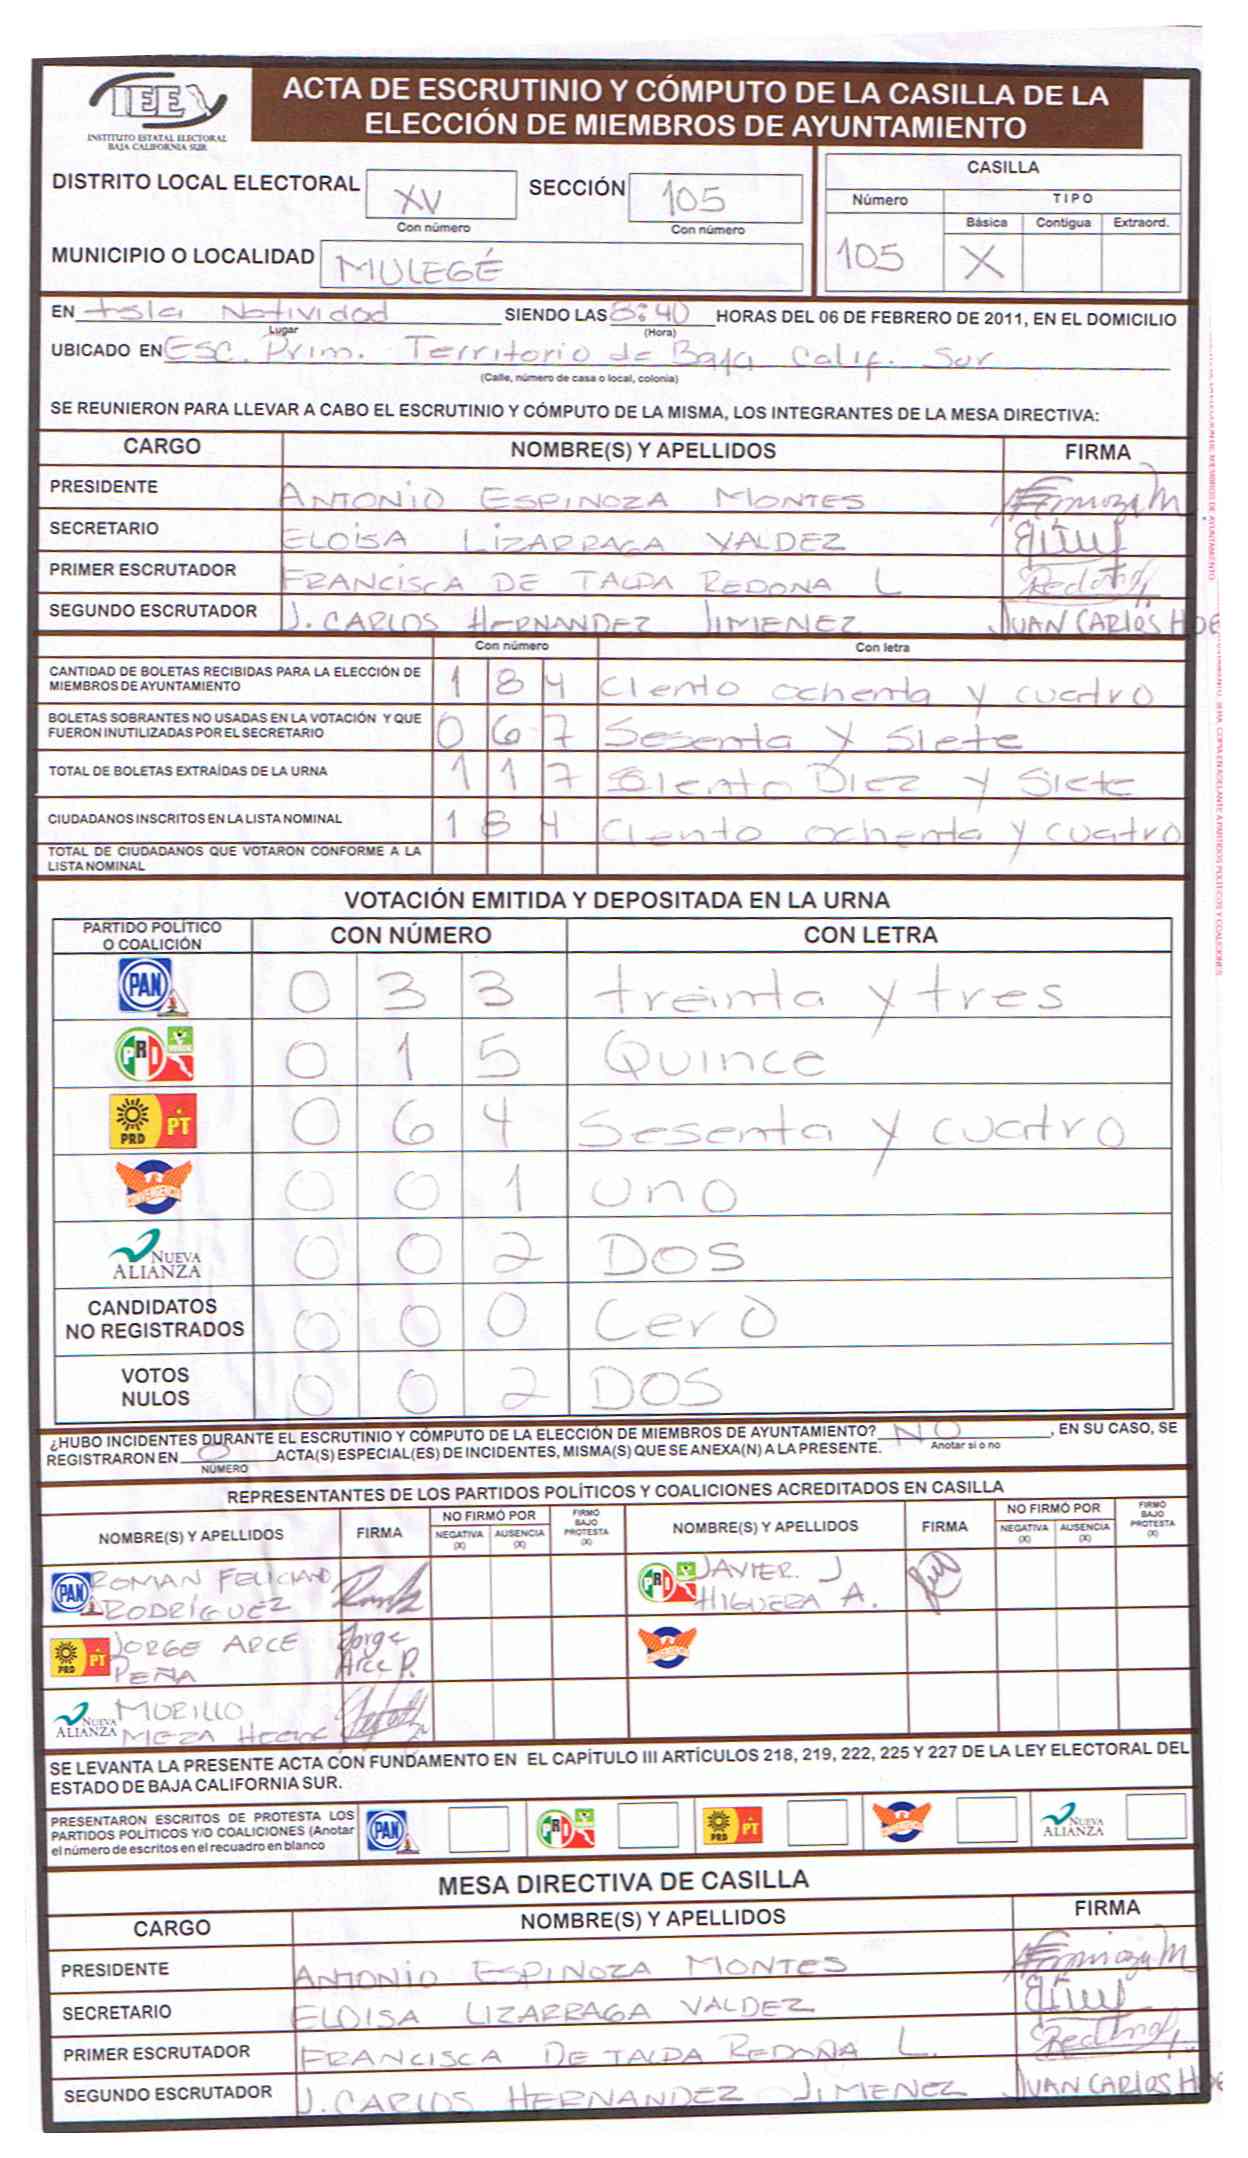 IEE
INSTITUTO ESTATAL ELECTORAL
BAJA CALIFORNIA SUR
ACTA DE ESCRUTINIO Y CÓMPUTO DE LA CASILLA DE LA
ELECCIÓN DE MIEMBROS DE AYUNTAMIENTO
DISTRITO LOCAL ELECTORAL XV SECCIÓN 105
Con número Con número
MUNICIPIO O LOCALIDAD MULEGÉ
CASILLA
Número TIPO
Básica Contigua Extraord.
105 X
EN Isla Natividad SIENDO LAS 8:40 HORAS DEL 06 DE FEBRERO DE 2011, EN EL DOMICILIO
Lugar (Hora)
UBICADO EN Esc. Prim. Territorio de Baja Calif. Sur
(Calle, número de casa o local, colonia)
SE REUNIERON PARA LLEVAR A CABO EL ESCRUTINIO Y CÓMPUTO DE LA MISMA, LOS INTEGRANTES DE LA MESA DIRECTIVA:
CARGO NOMBRE(S) Y APELLIDOS FIRMA
PRESIDENTE ANTONIO ESPINOZA MONTES
SECRETARIO ELOISA LIZARRAGA VALDEZ
PRIMER ESCRUTADOR FRANCISCA DE TALDA REDONA L
SEGUNDO ESCRUTADOR J. CARLOS HERNANDEZ JIMENEZ JUAN CARLOS
Con número Con letra
CANTIDAD DE BOLETAS RECIBIDAS PARA LA ELECCIÓN DE
MIEMBROS DE AYUNTAMIENTO 1 8 4 Ciento ochenta y cuatro
BOLETAS SOBRANTES NO USADAS EN LA VOTACIÓN Y QUE
FUERON INUTILIZADAS POR EL SECRETARIO 0 6 7 Sesenta y Siete
TOTAL DE BOLETAS EXTRAÍDAS DE LA URNA 1 1 7 Siento Diez y Siete
CIUDADANOS INSCRITOS EN LA LISTA NOMINAL 1 8 4 Ciento ochenta y cuatro
TOTAL DE CIUDADANOS QUE VOTARON CONFORME A LA
LISTA NOMINAL
VOTACIÓN EMITIDA Y DEPOSITADA EN LA URNA
PARTIDO POLÍTICO
O COALICIÓN CON NÚMERO CON LETRA
PAN 0 3 3 treinta y tres
PRI VERDE 0 1 5 Quince
PRD PT 0 6 4 Sesenta y cuatro
CONVERGENCIA 0 0 1 uno
NUEVA ALIANZA 0 0 2 DOS
CANDIDATOS
NO REGISTRADOS 0 0 0 Cero
VOTOS
NULOS 0 0 2 DOS
¿HUBO INCIDENTES DURANTE EL ESCRUTINIO Y CÓMPUTO DE LA ELECCIÓN DE MIEMBROS DE AYUNTAMIENTO? NO , EN SU CASO, SE
Anotar si o no
REGISTRARON EN 0 ACTA(S) ESPECIAL(ES) DE INCIDENTES, MISMA(S) QUE SE ANEXA(N) A LA PRESENTE.
NÚMERO
REPRESENTANTES DE LOS PARTIDOS POLÍTICOS Y COALICIONES ACREDITADOS EN CASILLA
NOMBRE(S) Y APELLIDOS FIRMA NO FIRMÓ POR NEGATIVA (X) AUSENCIA (X) FIRMÓ BAJO PROTESTA (X) NOMBRE(S) Y APELLIDOS FIRMA NO FIRMÓ POR NEGATIVA (X) AUSENCIA (X) FIRMÓ BAJO PROTESTA (X)
PAN ROMAN FELICIANO PRI JAVIER. J
RODRÍGUEZ HIGUERA A.
PRD PT JORGE ARCE Jorge CONVERGENCIA
PEÑA Arce P.
NUEVA ALIANZA MURILLO
MEZA
SE LEVANTA LA PRESENTE ACTA CON FUNDAMENTO EN EL CAPÍTULO III ARTÍCULOS 218, 219, 222, 225 Y 227 DE LA LEY ELECTORAL DEL
ESTADO DE BAJA CALIFORNIA SUR.
PRESENTARON ESCRITOS DE PROTESTA LOS
PARTIDOS POLÍTICOS Y/O COALICIONES (Anotar
el número de escritos en el recuadro en blanco
PAN PRI PRD PT CONVERGENCIA NUEVA ALIANZA
MESA DIRECTIVA DE CASILLA
CARGO NOMBRE(S) Y APELLIDOS FIRMA
PRESIDENTE ANTONIO ESPINOZA MONTES
SECRETARIO ELOISA LIZARRAGA VALDEZ
PRIMER ESCRUTADOR FRANCISCA DE TALDA REDONA L.
SEGUNDO ESCRUTADOR J. CARLOS HERNANDEZ JIMENEZ JUAN CARLOS